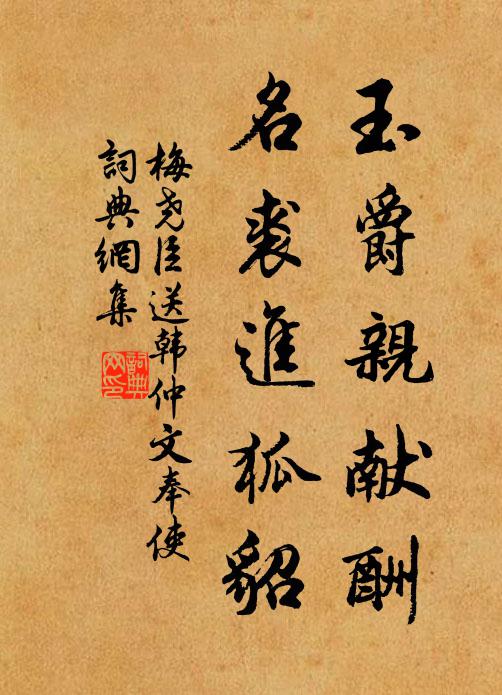 玉爵親献酬
名裘進狐貂
梅尧臣送韩仲文奉使
詞典網集
詞典网印